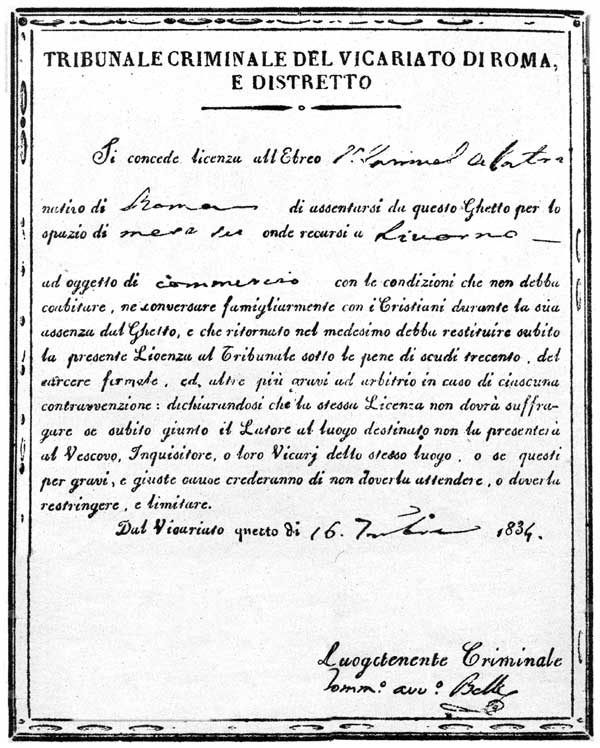 TRIBUNALE CRIMINALE DEL VICARIATO DI ROMA,
E DISTRETTO
Si concede licenza all Ebreo
nativo di Roma di assentarsi da questo Ghetto per lo
spazio di mesi sei onde recarsi a Livorno
ad oggetto di commercio con le condizioni che non debba
coabitare, ne conversare famigliarmente con i Cristiani durante la sua
assenza dal Ghetto, e che ritornato nel medesimo debba restituire subito
la presente Licenza al Tribunale sotto le pene di scudi trecento, del
carcere formale, ed altre più gravi ad arbitrio in caso di ciascuna
contravvenzione: dichiarandosi che la stessa Licenza non dovrà suffra-
gare se subito giunto il Latore al luogo destinato non la presenterà
al Vescovo, Inquisitore, o loro Vicarj dello stesso luogo, o se questi
per gravi, e giuste cause crederanno di non doverla attendere, o doverla
restringere, e limitare.
Dal Vicariato questo dì 16. 1834.
Luogotenente Criminale
avv.º